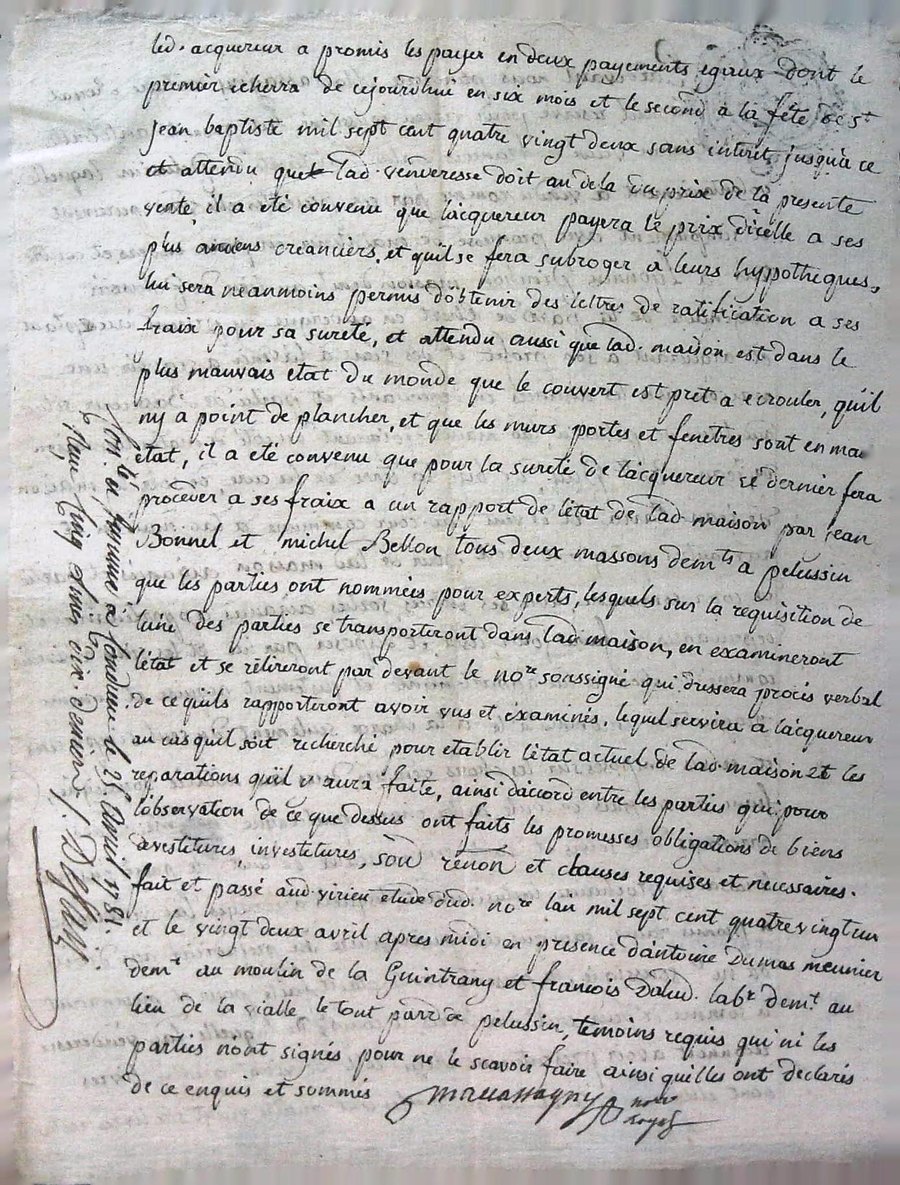 led. acquereur a promis les payer en deux payements egaux dont le
premier echerra de cejourdhui en six mois et le second à la fête de st
Jean baptiste mil sept cent quatre vingt deux sans interit jusqu'a ce
et attendu que lad. venderesse doit au dela du prix de la presente
vente, il a été convenu que lacquereur payera le prix dicelle a ses
plus anciens creanciers, et quil se fera subroger a leurs hypotheques,
lui sera neanmoins permis dobtenir des lettres de ratification a ses
fraix pour sa sureté, et attendu aussi que lad. maison est dans le
plus mauvais etat du monde que le couvert est pret a ecrouler, quil
ny a point de plancher, et que les murs portes et fenetres sont en mau
état, il a été convenu que pour la sureté de lacquereur ce dernier fera
proceder a ses fraix a un rapport de létat de lad. maison par jean
Bonnel et michel Bellon tous deux massons demts a pelussin
que les parties ont nommés pour experts, lesquels sur la requisition de
lune des parties se transporteront dans lad. maison, en examineront
létat et se retireront par devant le nore soussigné qui dressera procès verbal
de ce quils rapporteront avoir vus et éxaminés, lequel servira a lacquereur
au cas quil soit recherché pour etablir létat actuel de lad. maison et les
reparations quil y aura faite, ainsi daccord entre les parties qui pour
lobservation de ce que dessus ont faits les promesses obligations de biens
devestitures, investitures, soû rénon et clauses requises et necessaires.
fait et passé aud. virieu etude dud. nore lan mil sept cent quatre vingt un
et le vingt deux avril apres midi en presence dantoine Dumas meunier
demt au moulin de la Guintrany et francois Dalud. labr demt au
lieu de la vialle le tout parr de pelussin, temoins requis qui ni les
parties nont signés pour ne le scavoir faire ainsi quilles ont declarés
de ce enquis et sommés
nore
royal
Con. lé en farinne à Condrieu le 25 avril 1781.